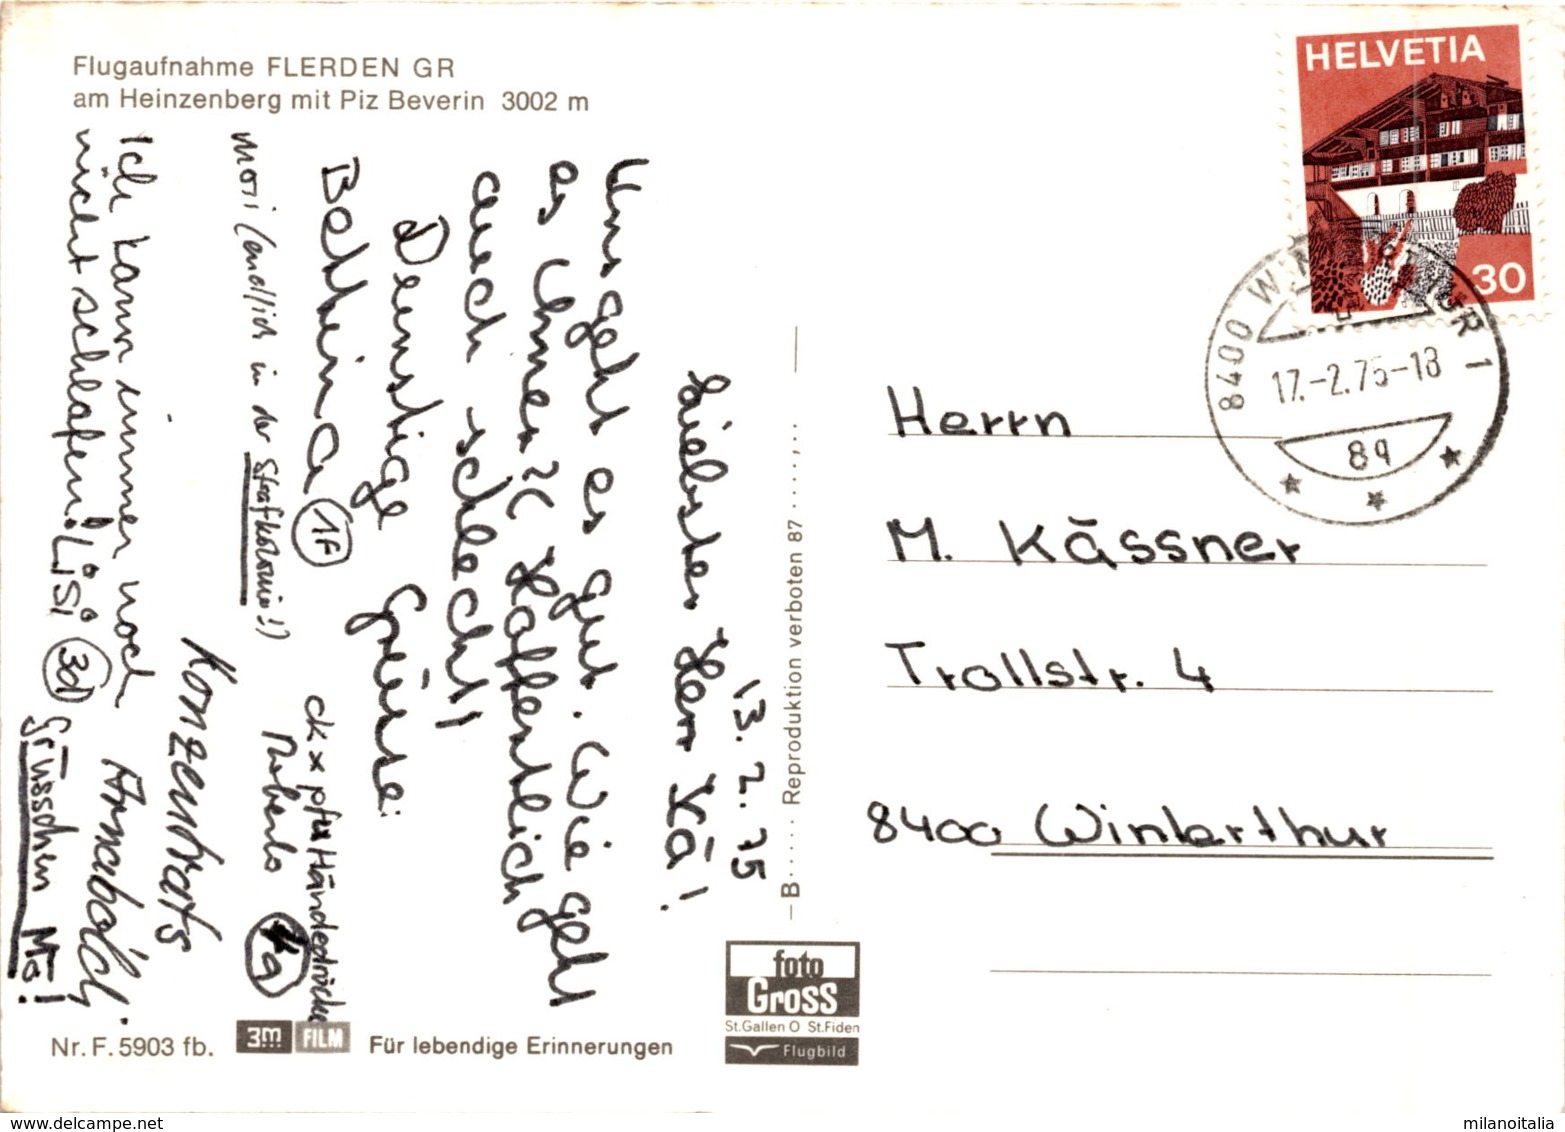 Flugaufnahme FLERDEN GR
am Heinzenberg mit Piz Beverin 3002 m
13. 2. 75
Liebster Herr Kä!
Uns geht es gut. Wie geht
es Ihnen?
auch schlecht!
Grüsse:
Bettina 1F
mori (endlich in der Strafkolonie!)
Händedrücke
Roberto
Konzentrats
Ich kann immer noch
nicht schlafen! Lisi 3d
Grüsschen Mö!
Nr. F. 5903 fb.
3M FILM
Für lebendige Erinnerungen
B Reproduktion verboten 87
foto
Gross
St.Gallen O St.Fiden
Flugbild
HELVETIA
30
8400 WINTERTHUR 1
17.-2.75-18
Herrn
M. Kässner
Trollstr. 4
8400 Winterthur
milanoitalia